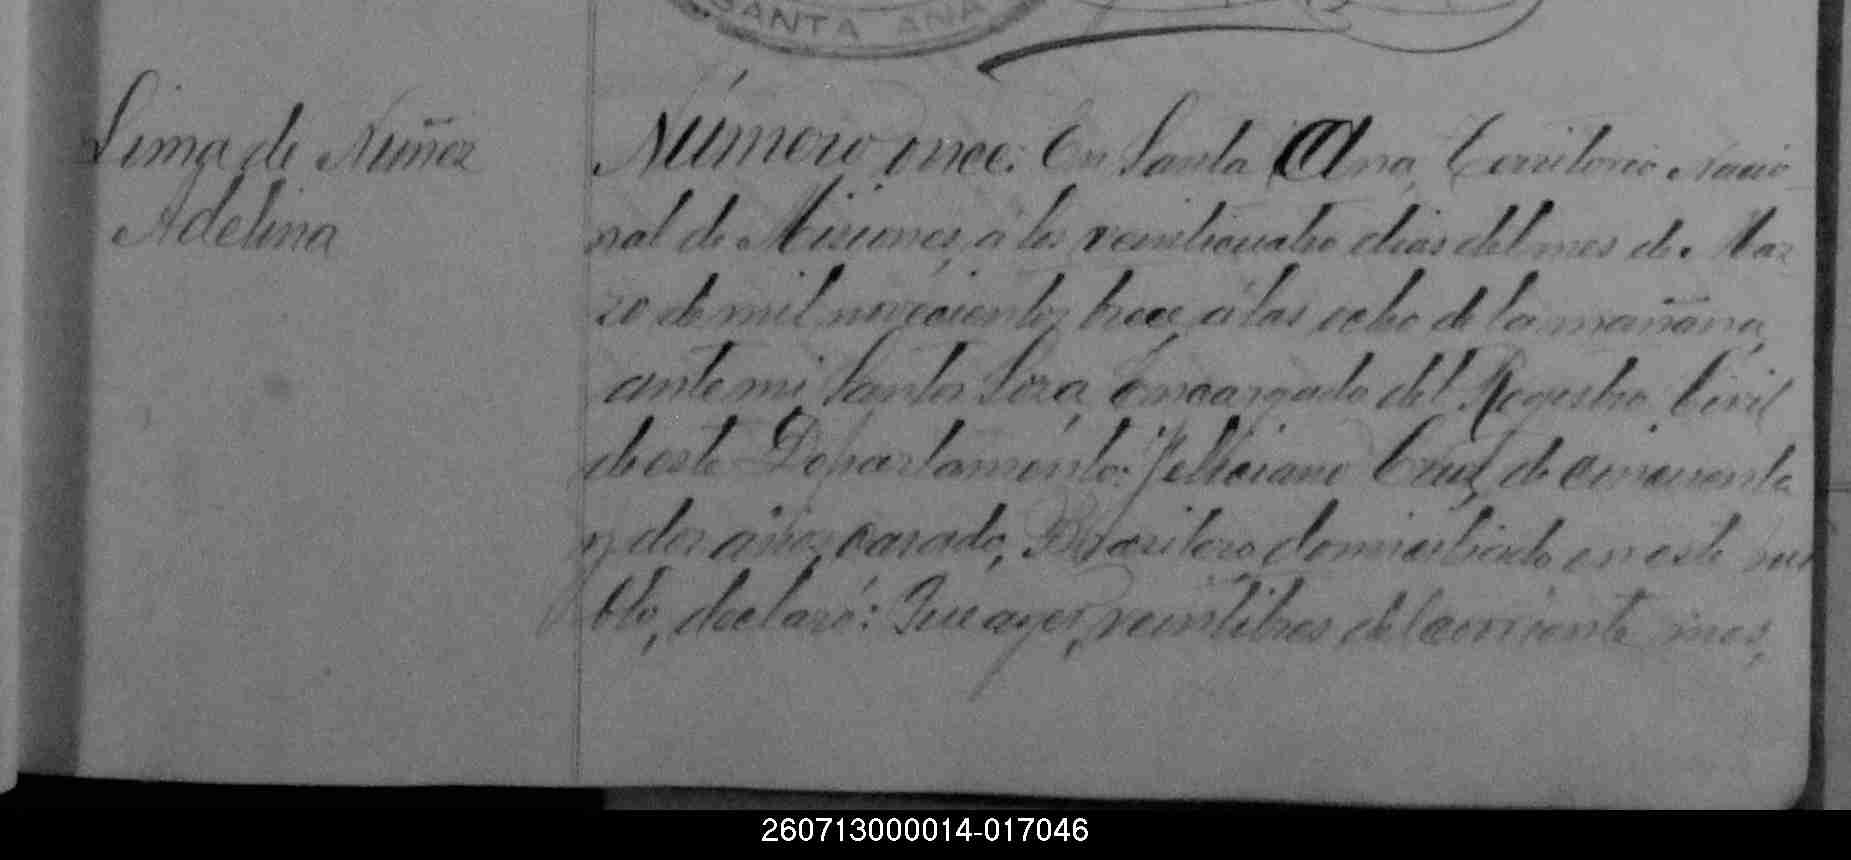 SANTA ANA
Lima de Nuñez
Adelina
Número once. En Santa Ana, Territorio Nacio
nal de Misiones, a los veinticuatro dias del mes de Mar
zo de mil novecientos trece, a las ocho de la mañana,
ante mi, Santos Sosa, Encargado del Registro Civil
de este Departamento: Feliciano Cruz, de cincuenta
y dos años, casado, Brasilero domiciliado en este pue
blo, declaró: Que ayer, veintitres del corriente mes,
260713000014-017046